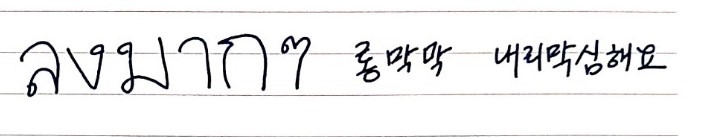 ลงมากๆ 롱막막 내리막심해요